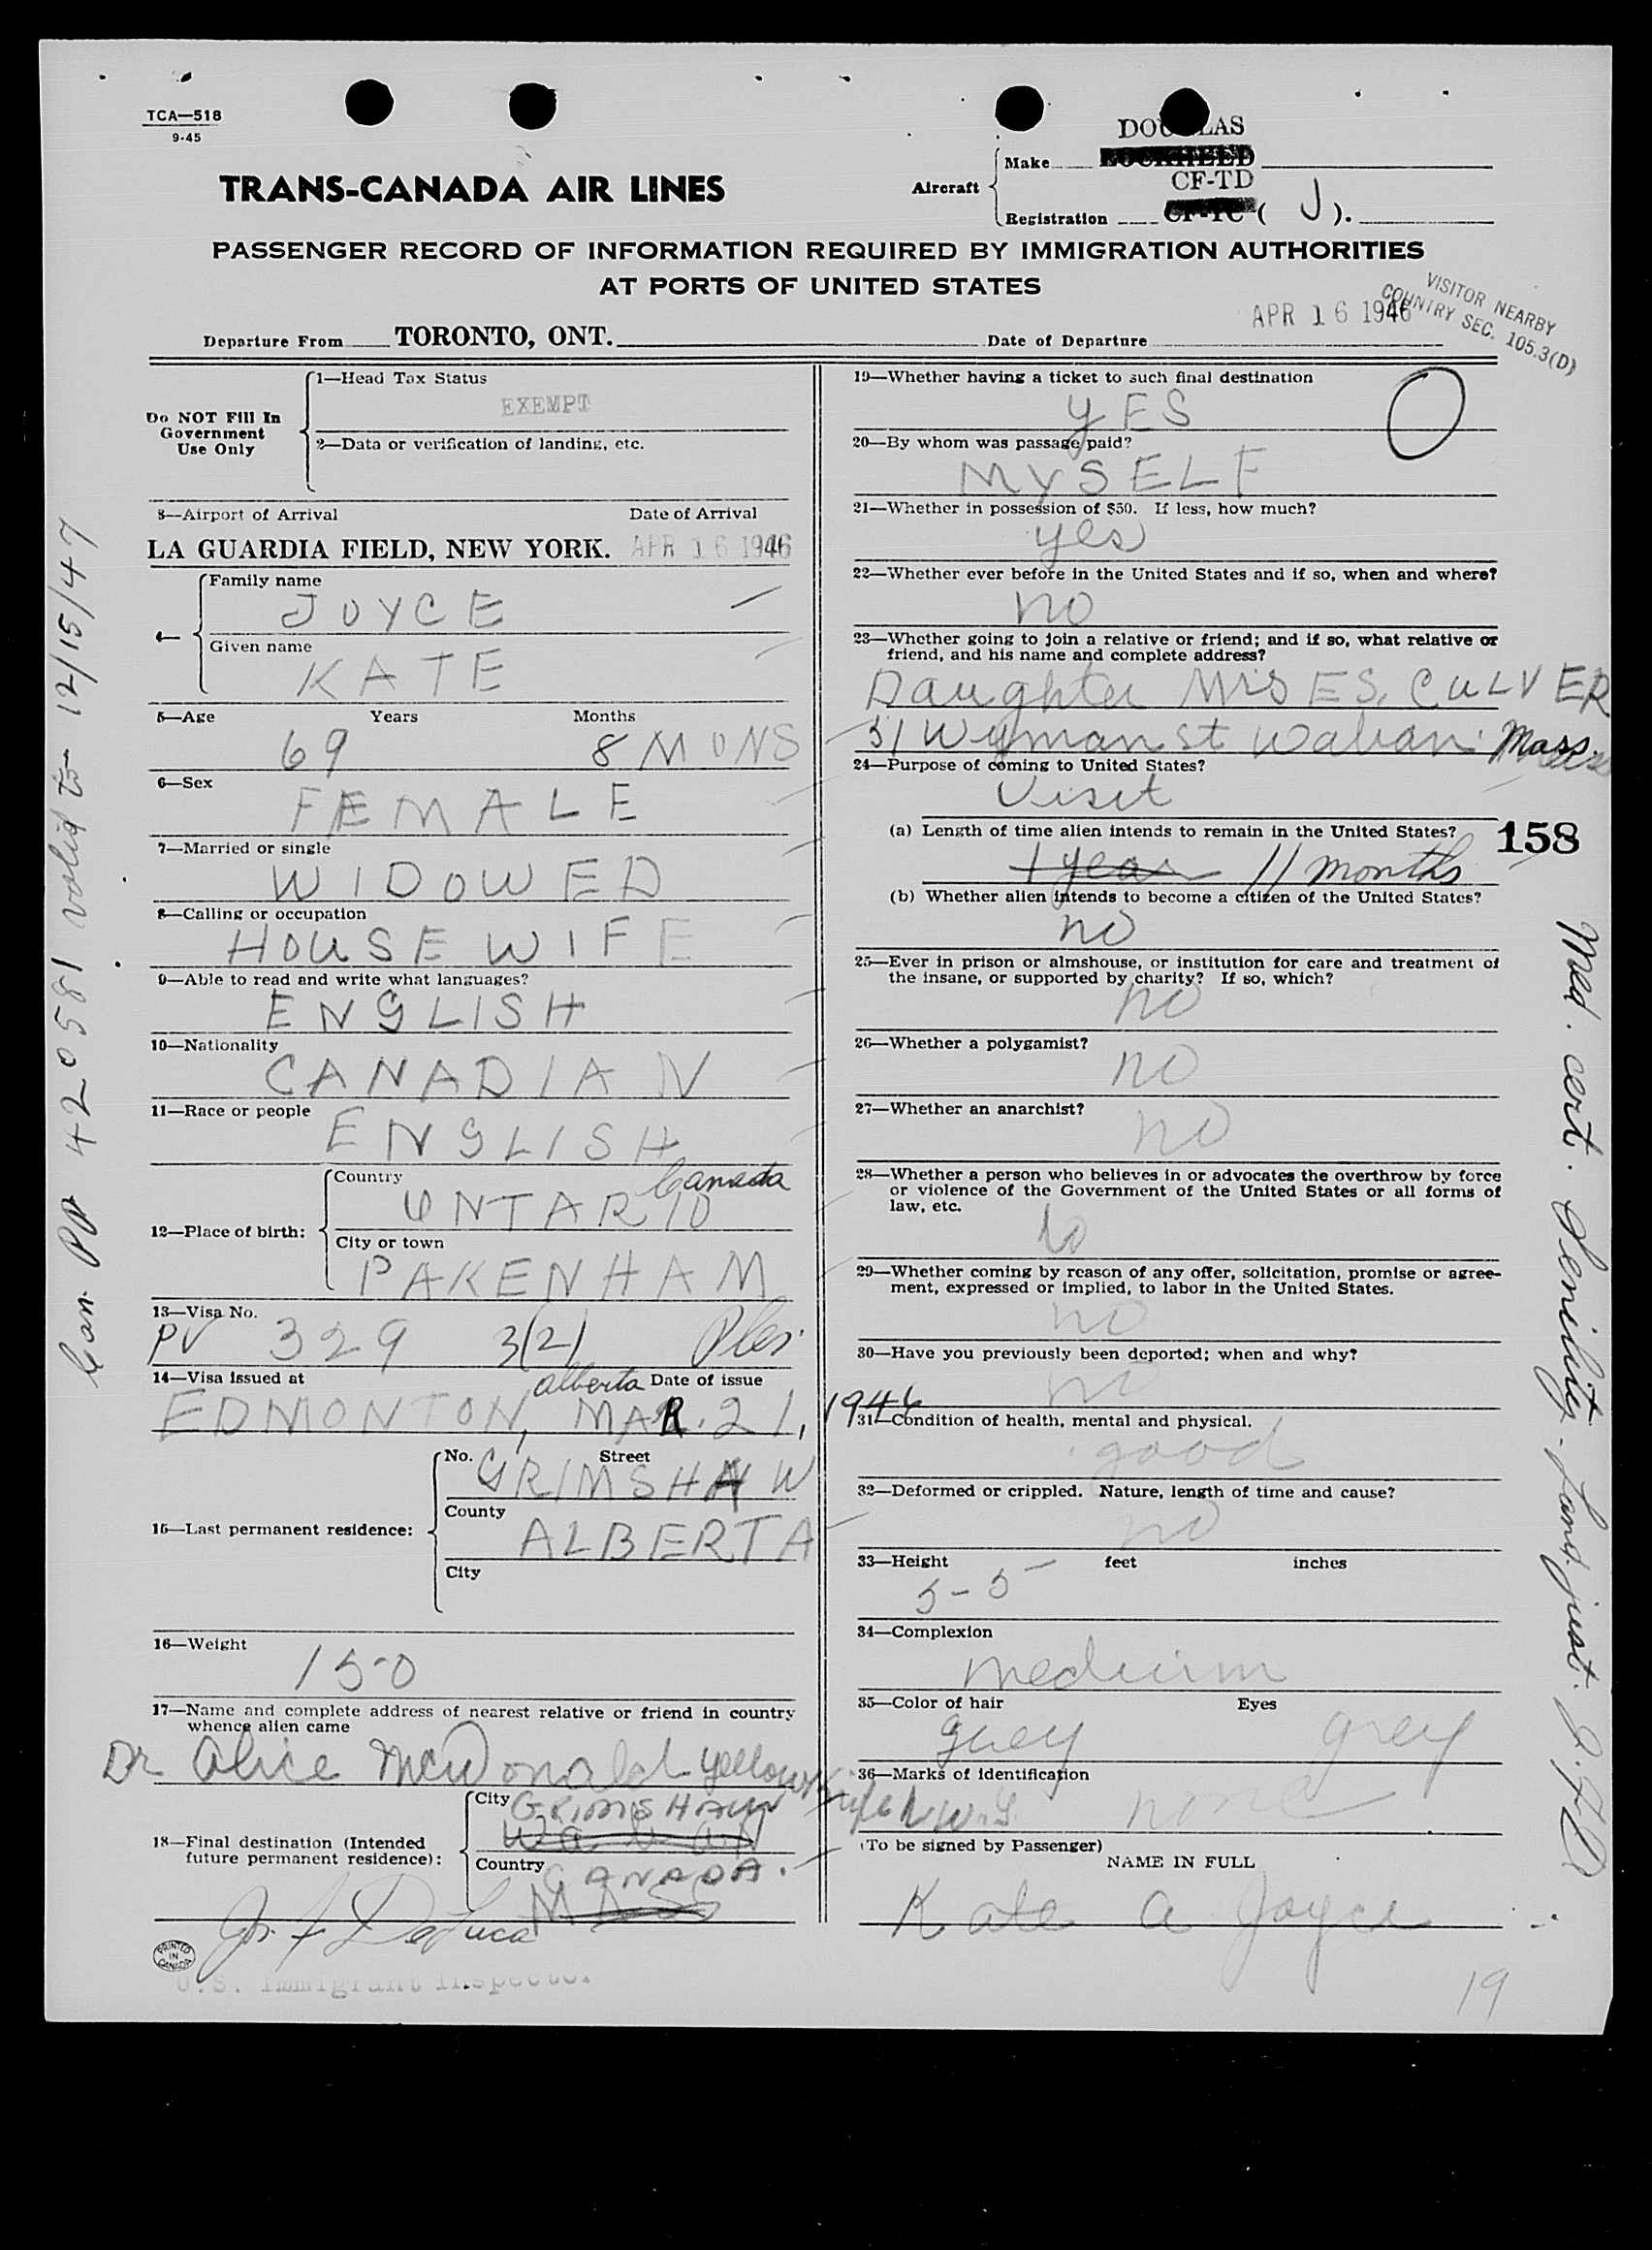 TCA—518
9-45
DOUGLAS
Aircraft
Make
LOCKHEED
CF-TD
Registration CF-TC ( J ).
TRANS-CANADA AIR LINES
PASSENGER RECORD OF INFORMATION REQUIRED BY IMMIGRATION AUTHORITIES
AT PORTS OF UNITED STATES
VISITOR NEARBY
COUNTRY SEC. 105.3(D)
Departure From TORONTO, ONT. Date of Departure APR 16 1946
Do NOT Fill In
Government
Use Only
1—Head Tax Status
EXEMPT
2—Data or verification of landing, etc.
3—Airport of Arrival Date of Arrival
LA GUARDIA FIELD, NEW YORK. APR 16 1946
4—
Family name
JOYCE
Given name
KATE
5—Age Years Months
69 8 MONS
6—Sex
FEMALE
7—Married or single
WIDOWED
8—Calling or occupation
HOUSEWIFE
9—Able to read and write what languages?
ENGLISH
10—Nationality
CANADIAN
11—Race or people
ENGLISH
12—Place of birth:
Country Canada
ONTARIO
City or town
PAKENHAM
13—Visa No.
PV 329 3(2)
14—Visa issued at Alberta Date of issue
EDMONTON, MAR. 21, 1946
15—Last permanent residence:
No. Street
GRIMSHAW
County
ALBERTA
City
16—Weight
150
17—Name and complete address of nearest relative or friend in country
whence alien came
Dr Alice McDonald Yellowknife N.W.T.
18—Final destination (Intended
future permanent residence):
City GRIMSHAW
WABAN
Country CANADA.
MASS
U.S. Immigrant Inspector
PRINTED
IN
CANADA
19—Whether having a ticket to such final destination
YES
20—By whom was passage paid?
MYSELF
21—Whether in possession of $50. If less, how much?
yes
22—Whether ever before in the United States and if so, when and where?
no
23—Whether going to join a relative or friend; and if so, what relative or
friend, and his name and complete address?
Daughter Mrs E.S. CULVER
31 Wyman st Waban Mass.
24—Purpose of coming to United States?
Visit
(a) Length of time alien intends to remain in the United States?
1 year 11 months
158
(b) Whether alien intends to become a citizen of the United States?
no
25—Ever in prison or almshouse, or institution for care and treatment of
the insane, or supported by charity? If so, which?
no
26—Whether a polygamist?
no
27—Whether an anarchist?
no
28—Whether a person who believes in or advocates the overthrow by force
or violence of the Government of the United States or all forms of
law, etc.
no
29—Whether coming by reason of any offer, solicitation, promise or agree-
ment, expressed or implied, to labor in the United States.
no
30—Have you previously been deported; when and why?
no
31—Condition of health, mental and physical.
good
32—Deformed or crippled. Nature, length of time and cause?
no
33—Height feet inches
5-5
34—Complexion
medium
35—Color of hair Eyes
grey grey
36—Marks of identification
none
(To be signed by Passenger)
NAME IN FULL
Kate A Joyce
19
Can. PP 420581 valid to 12/15/47
Med. cert. Senility.